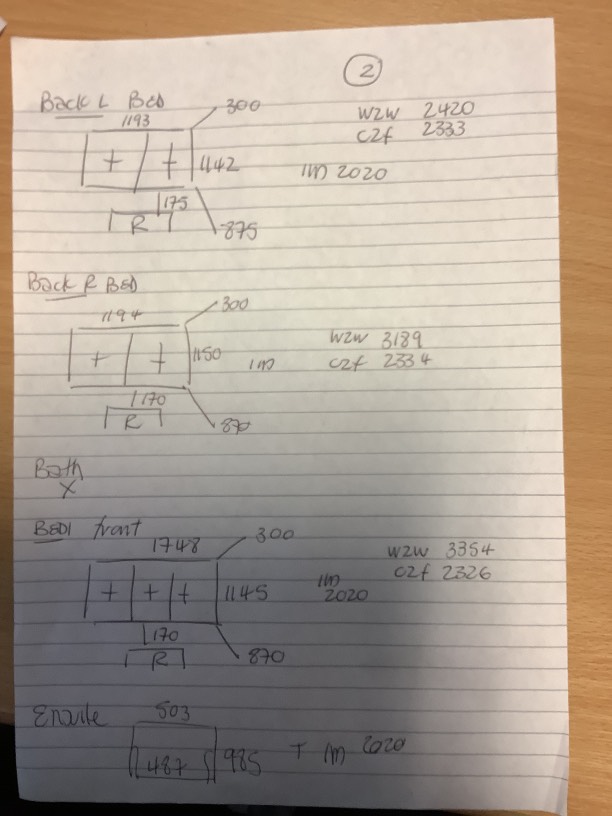 2
Back L Bed
1193
300
w2w 2420
c2f 2333
1142
1m 2020
175
R
875
Back R Bed
1194
300
w2w 3189
1150
1m
c2f 2334
170
R
870
Bath
X
BED1 front
1748
300
w2w 3354
c2f 2326
1145
1m
2020
170
R
870
503
487
985
+ 1m 2020